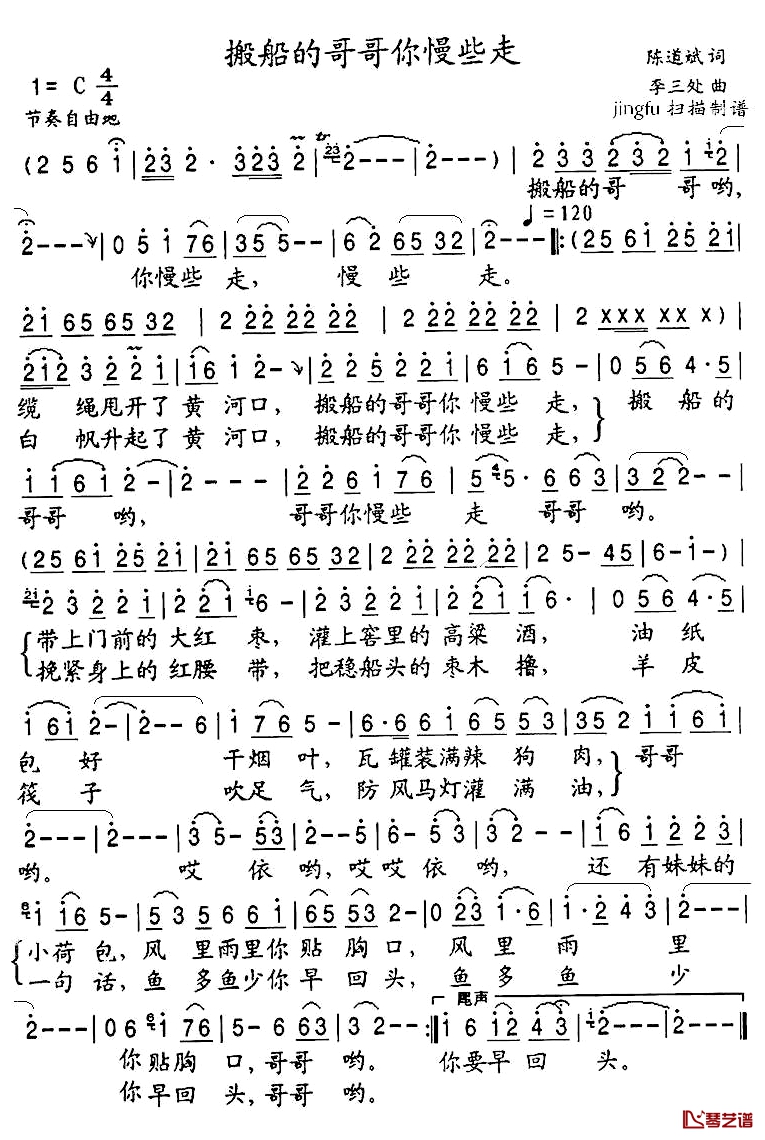 搬船的哥哥你慢些走
陈道斌 词
1= C 4/4
李三处 曲
节奏自由地
jingfu 扫描制谱
(2 5 6 1 | 23 2· 323 2 | 23 2--- | 2--- ) | 2 33 232 1 12 |
搬船的哥 哥哟，
♩=120
2--- | 0 5 1 76 | 35 5-- | 6 2 65 32 | 2--- ‖:(25 61 25 21 |
你慢些走， 慢些走。
21 65 65 32 | 2 22 22 22 | 22 22 22 22 | 2 xxx xx x) |
212 3 22 1 | 1 61 2- | 22 5 22 1 | 6 16 5- | 0 56 4·5 |
缆 绳甩开了黄河口，搬船的哥哥你慢些走， 搬船的
白 帆升起了黄河口，搬船的哥哥你慢些走，
1 1 61 2- | 2--- | 22 6 1 76 | 5 45· 6 63 | 3 2 2-- |
哥哥 哟， 哥哥你慢些 走 哥哥 哟。
(25 61 25 21 | 21 65 65 32 | 22 22 22 22 | 2 5- 45 | 6-1-) |
21 2 3 22 1 | 2 21 16- | 12 3 22 1 | 2 21 1 6· | 0 56 4·5 |
带上门前的大红枣，灌上窖里的高粱酒， 油纸
挽紧身上的红腰带，把稳船头的枣木撸， 羊皮
1 61 2- | 2--6 | 1 76 5- | 6·6 61 65 53 | 352 1 1 61 |
包好 干烟叶，瓦罐装满辣狗肉，哥哥
筏子 吹足气，防风马灯灌满油，
2--- | 2--- | 3 5- 53 | 2 35· 53 | 3 2-- | 1 6 12 23 |
哟。 哎依哟，哎哎依哟， 还有妹妹的
61 16 5- | 35 56 6 1 | 165 53 2- | 0 23 1·6 | 1·2 43 | 2--- |
小荷包，风里雨里你贴胸口，风里雨里
一句话，鱼多鱼少你早回头，鱼多鱼少
尾声
2--- | 0 6 61 76 | 5- 6 63 | 2--- :‖ 1 6 12 43 | 12--- | 2--- ‖
你贴胸口，哥哥哟。 你要早回头。
你早回头，哥哥哟。
琴艺谱